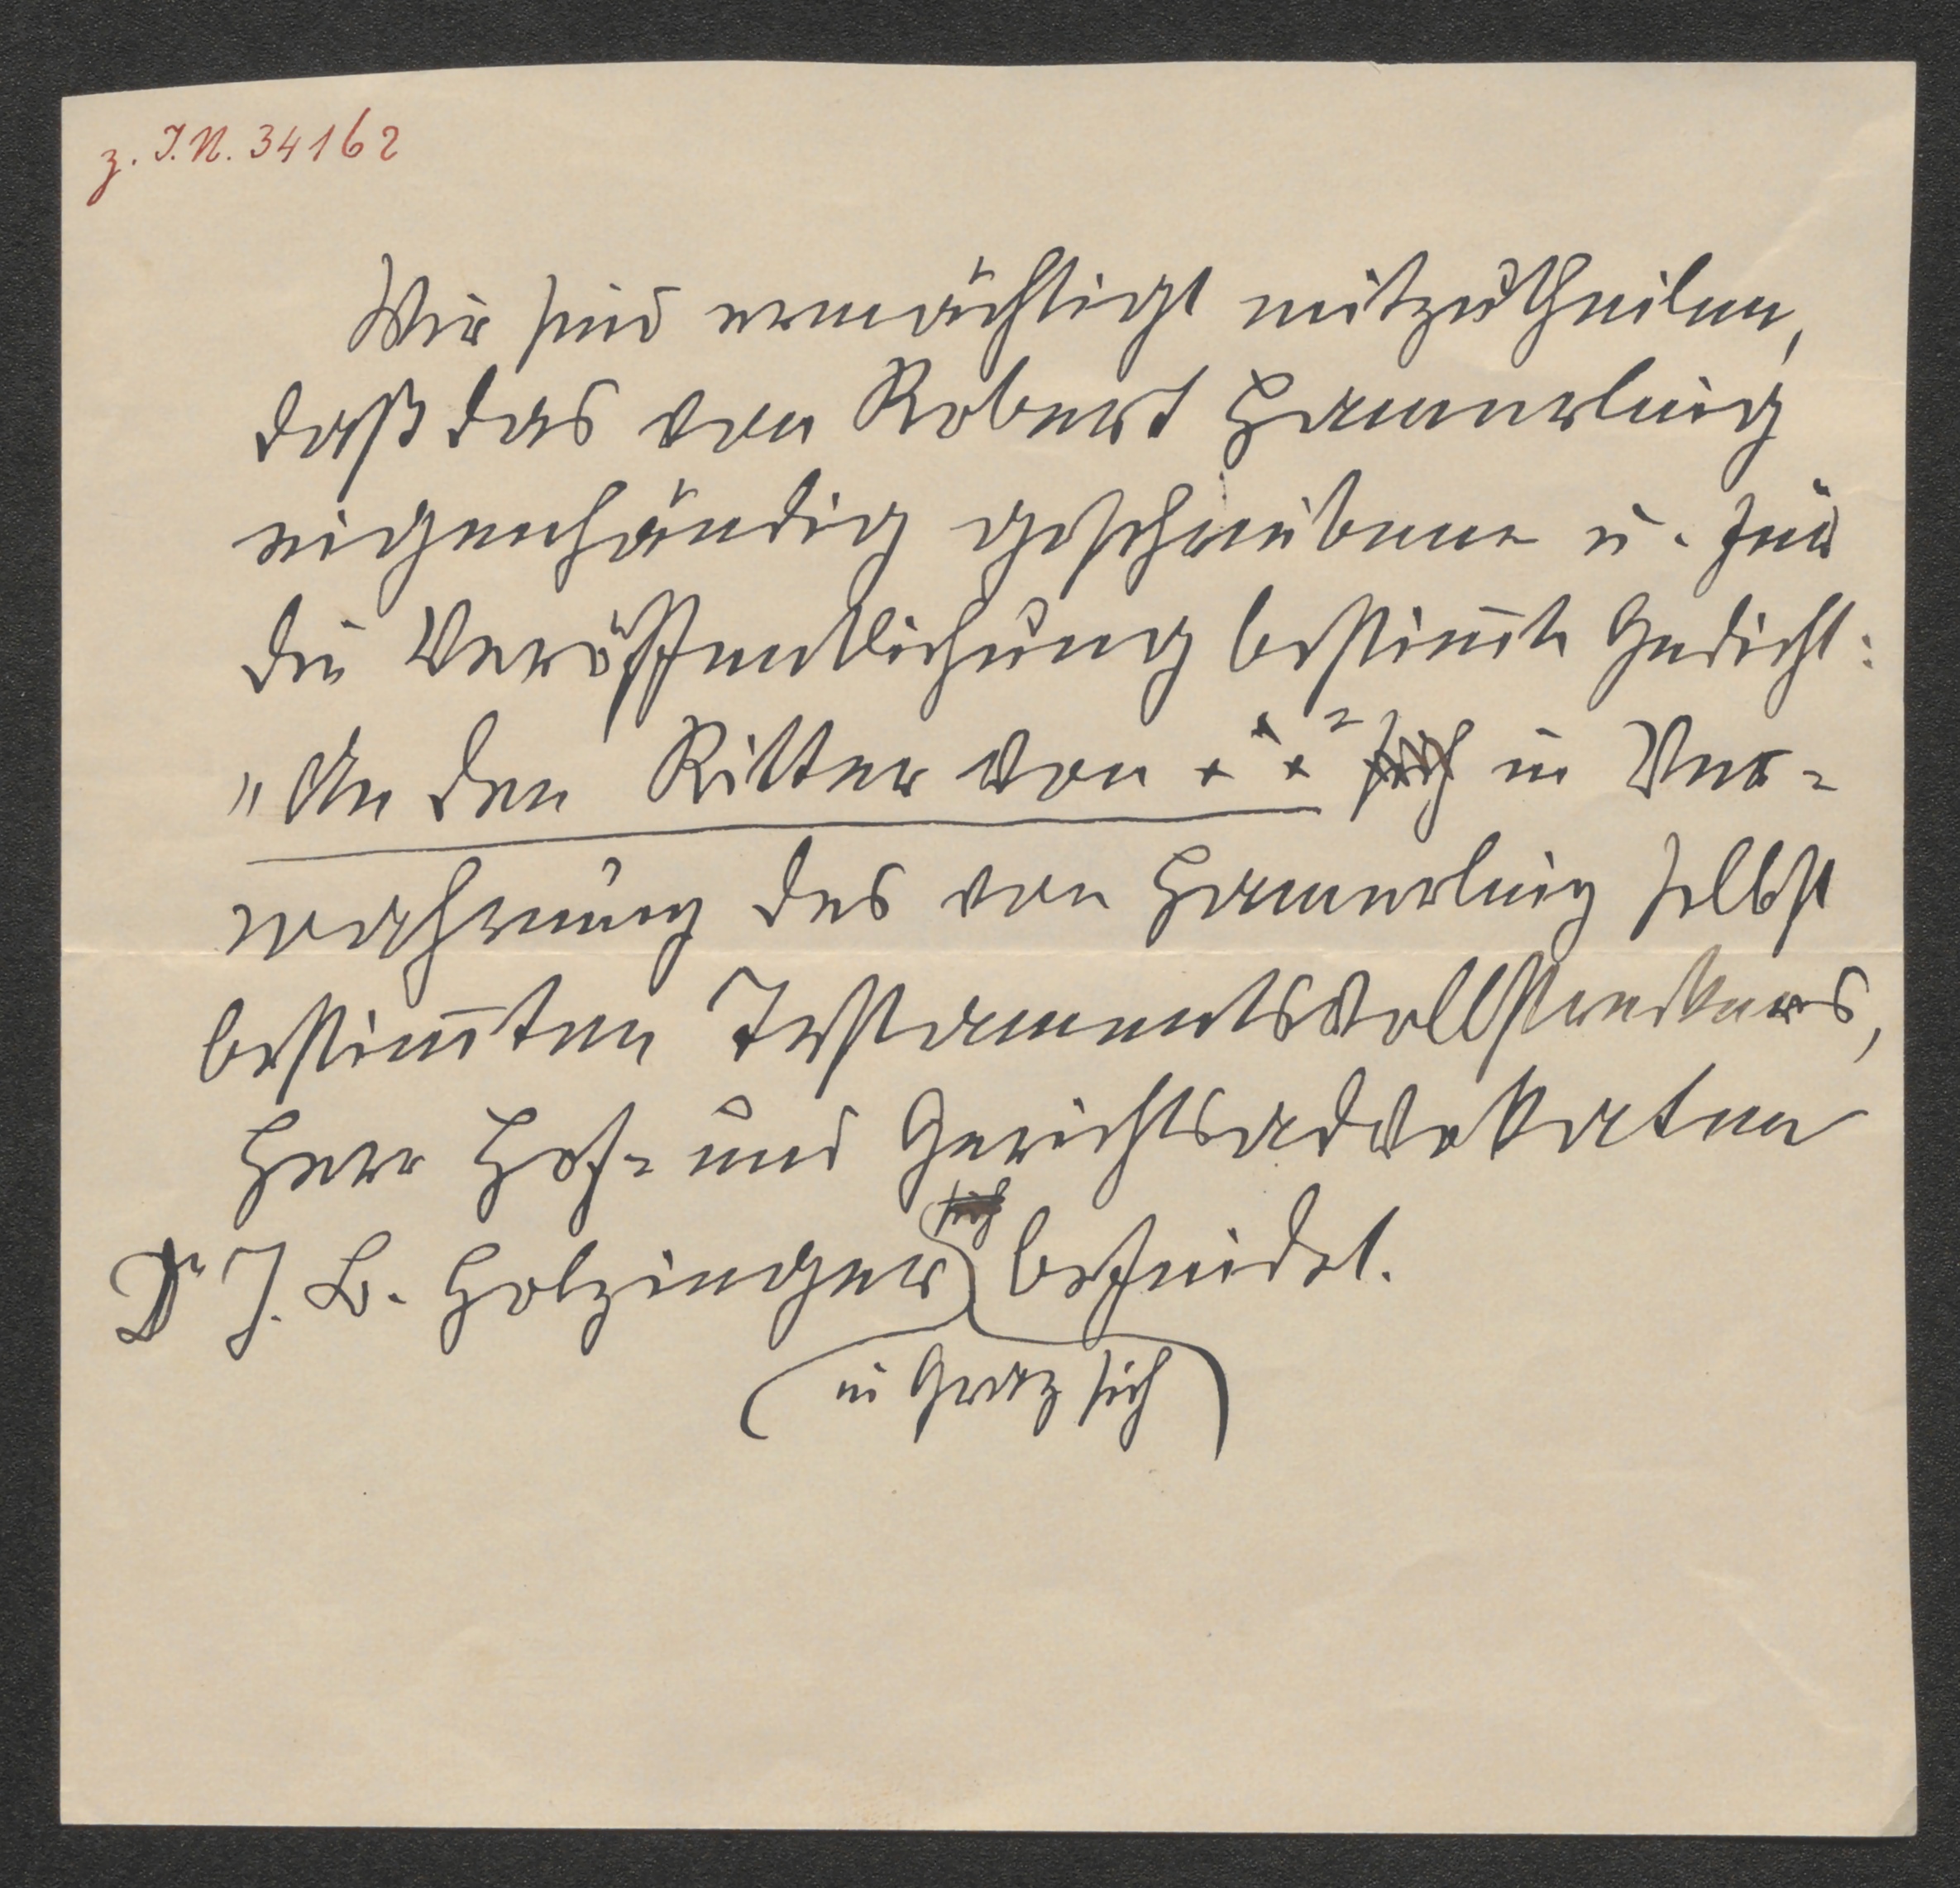 z. I.N. 34162
Wir sind ermächtigt mitzutheilen,
daß das von Robert Hamerling
eigenhändig geschriebene u. für
die Veröffentlichung bestim̅te Gedicht:
„An den Ritter von * * *" sich in Ver-
wahrung des von Hamerling selbst
bestim̅ten Testamentsvollstreckers,
Herr Hof- und Gerichtsadvokaten
sich
Dr J. B. Holzinger befindet.
in Graz sich